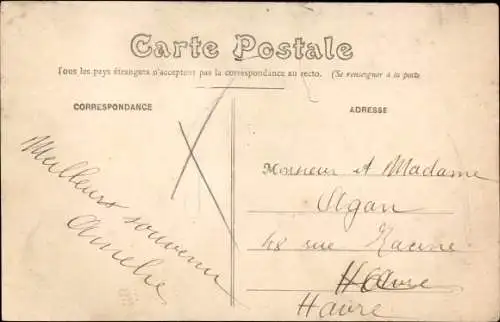 Carte Postale
Tous les pays étrangers n'acceptent pas la correspondance au recto. (Se renseigner à la poste
CORRESPONDANCE
ADRESSE
Meilleurs souvenir
Amelie
Monsieur et Madame
Agan
48 rue Racine
Havre
Havre